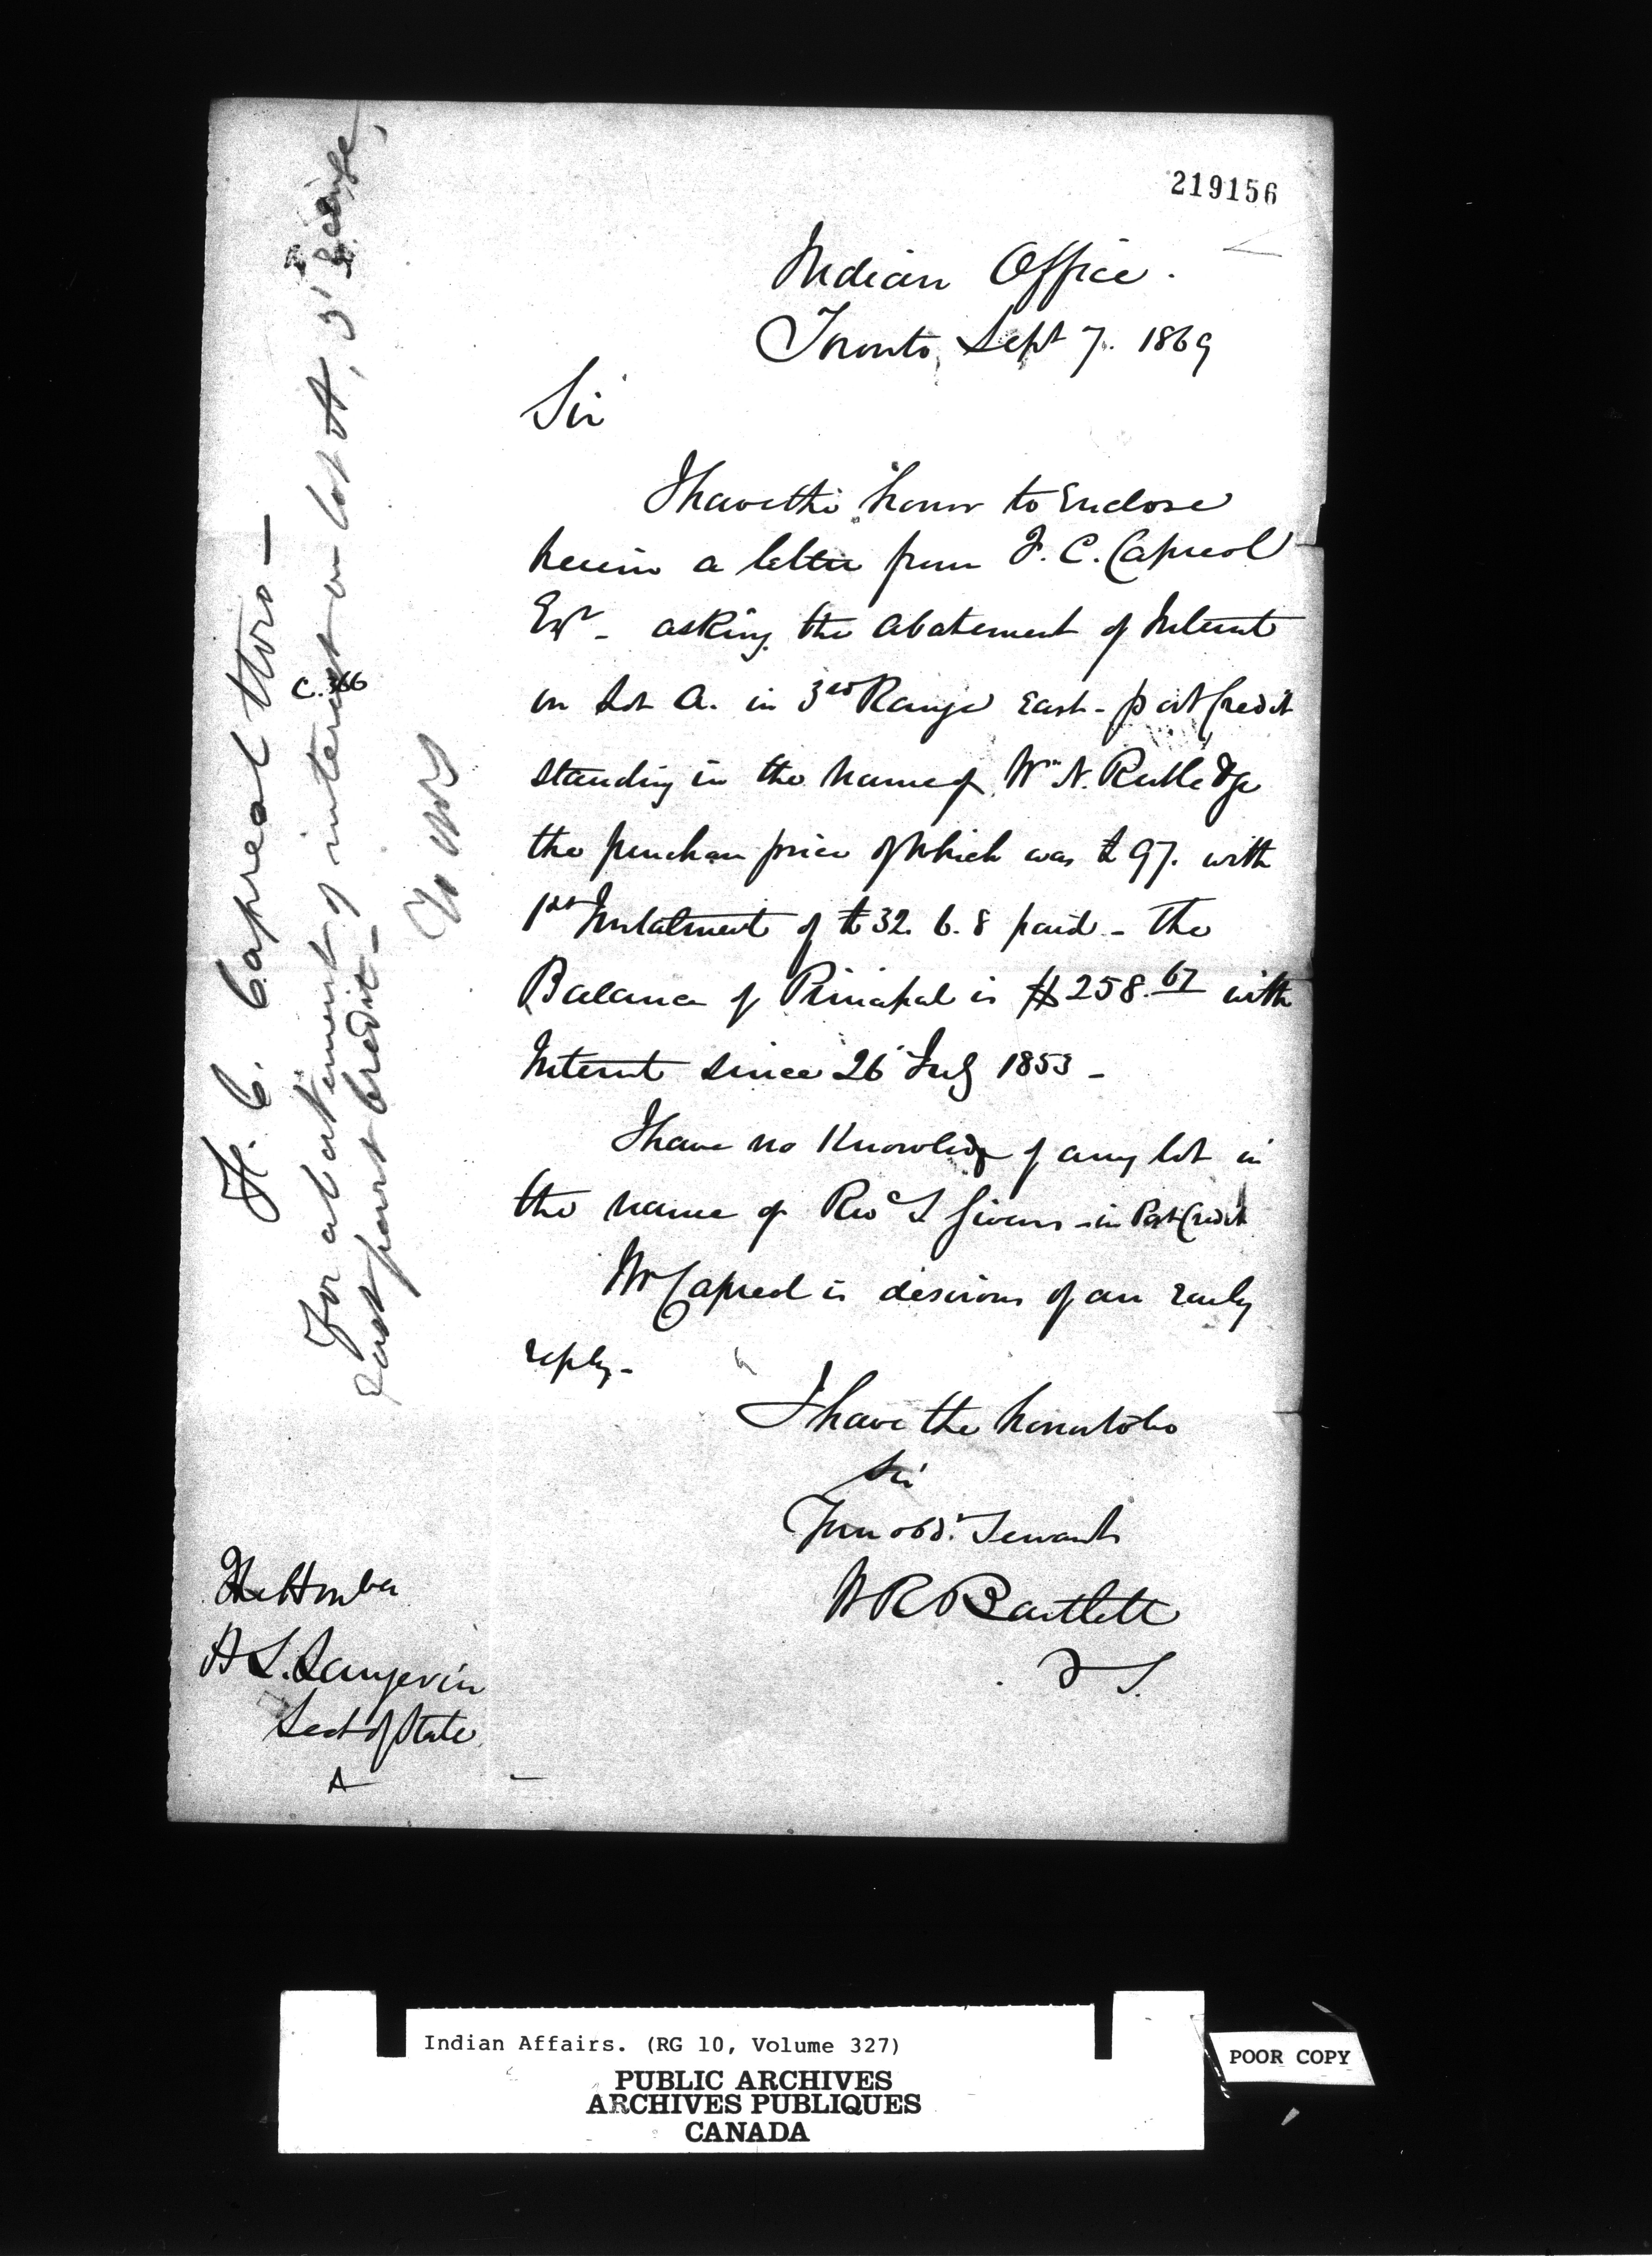 219156
Indian Office.
Toronto, Sept 7. 1869
Sir
I have the honor to Enclose
herein a letter from F. C. Capreol
Esqr - asking the abatement of Interest
on Lot A. in 3rd Range East - port Credit
standing in the name of Wm N. Rutledge
the purchase price of which was £97. with
1st Instalment of £32. 6. 8 paid - The
Balance of Principal is $258.67 with
Interest since 26 July 1853 -
I have no Knowledge of any lot in
the name of Revd S Givens - in Port Credit
Mr Capreol is desirous of an Early
reply -
I have the honor to be
Sir
Your obdt Servant
W R Bartlett
The Honble
H L. Langevin
Sect of State
A
F. C. Capreol Toro -
For abatement of interest on lot A, 3rd Range,
East port Credit -
C. 366
Indian Affairs. (RG 10, Volume 327)
PUBLIC ARCHIVES
ARCHIVES PUBLIQUES
CANADA
POOR COPY